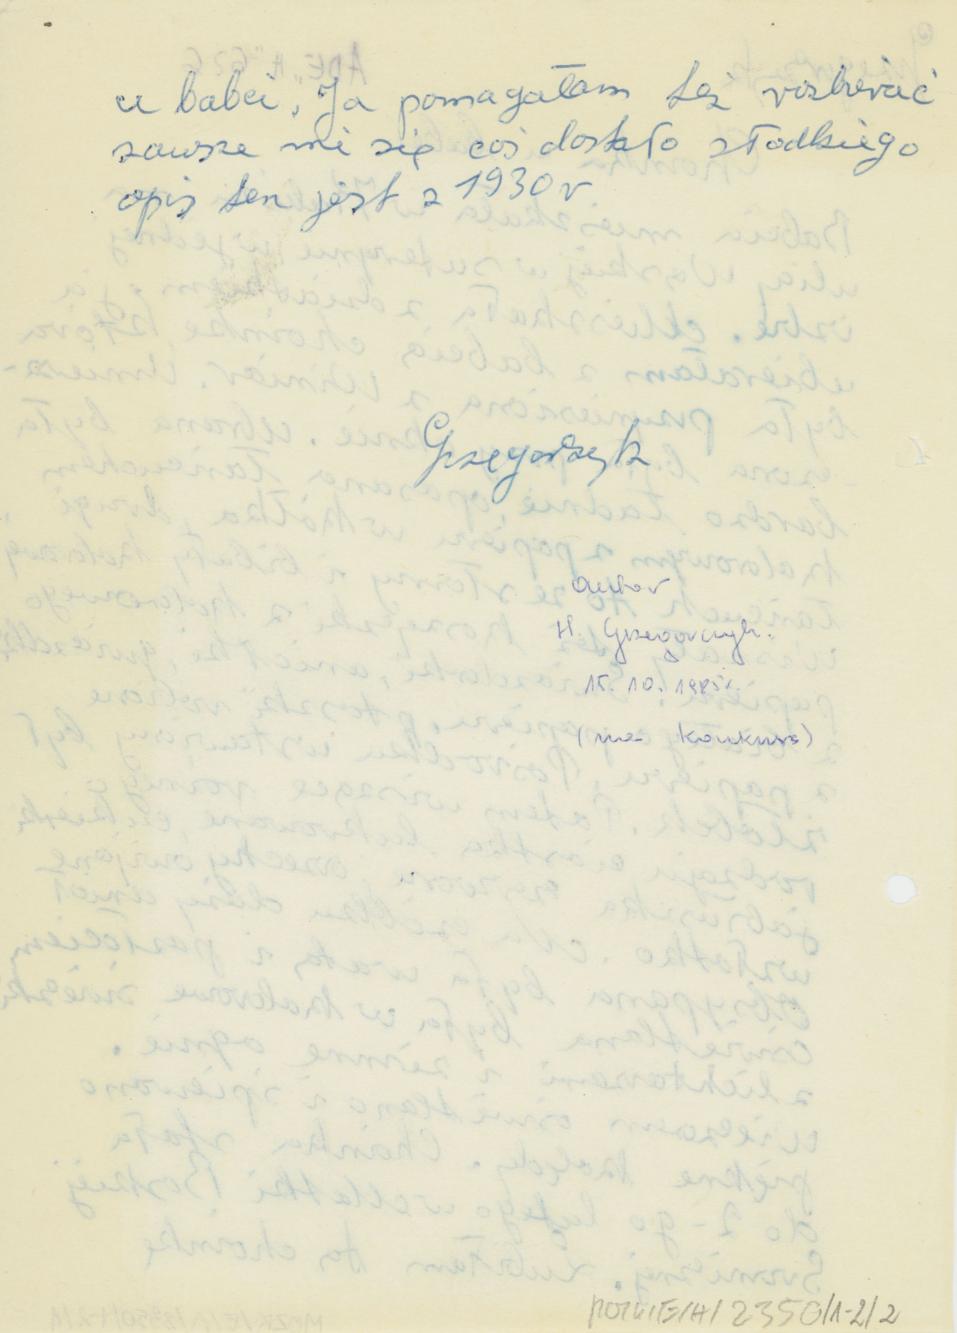 u babci. Ja pomagałam też rozbierać
zawsze mi się coś dostało słodkiego
opis ten jest z 1930 r
Grzegorczyk
autor
H. Grzegorczyk.
15. 10. 1985 r.
(na konkurs)
/E/A/2350/1-2/2